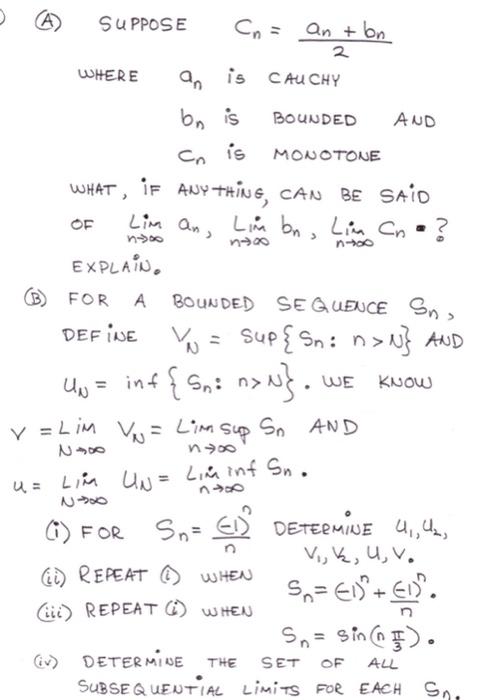 (A) SUPPOSE Cn = (an + bn)/2
WHERE an is CAUCHY
bn is BOUNDED AND
Cn is MONOTONE
WHAT, IF ANYTHING, CAN BE SAID
OF Lim n→∞ an, Lim n→∞ bn, Lim n→∞ Cn ?
EXPLAIN.
(B) FOR A BOUNDED SEQUENCE Sn,
DEFINE VN = SUP{Sn: n>N} AND
UN = inf{Sn: n>N}. WE KNOW
V = Lim N→∞ VN = Lim sup n→∞ Sn AND
u = Lim N→∞ UN = Lim inf n→∞ Sn.
(i) FOR Sn = (-1)^n/n DETERMINE U1, U2,
V1, V2, U, V.
(ii) REPEAT (i) WHEN Sn = (-1)^n + (-1)^n/n.
(iii) REPEAT (i) WHEN
Sn = sin(n π/3).
(iv) DETERMINE THE SET OF ALL
SUBSEQUENTIAL LIMITS FOR EACH Sn.